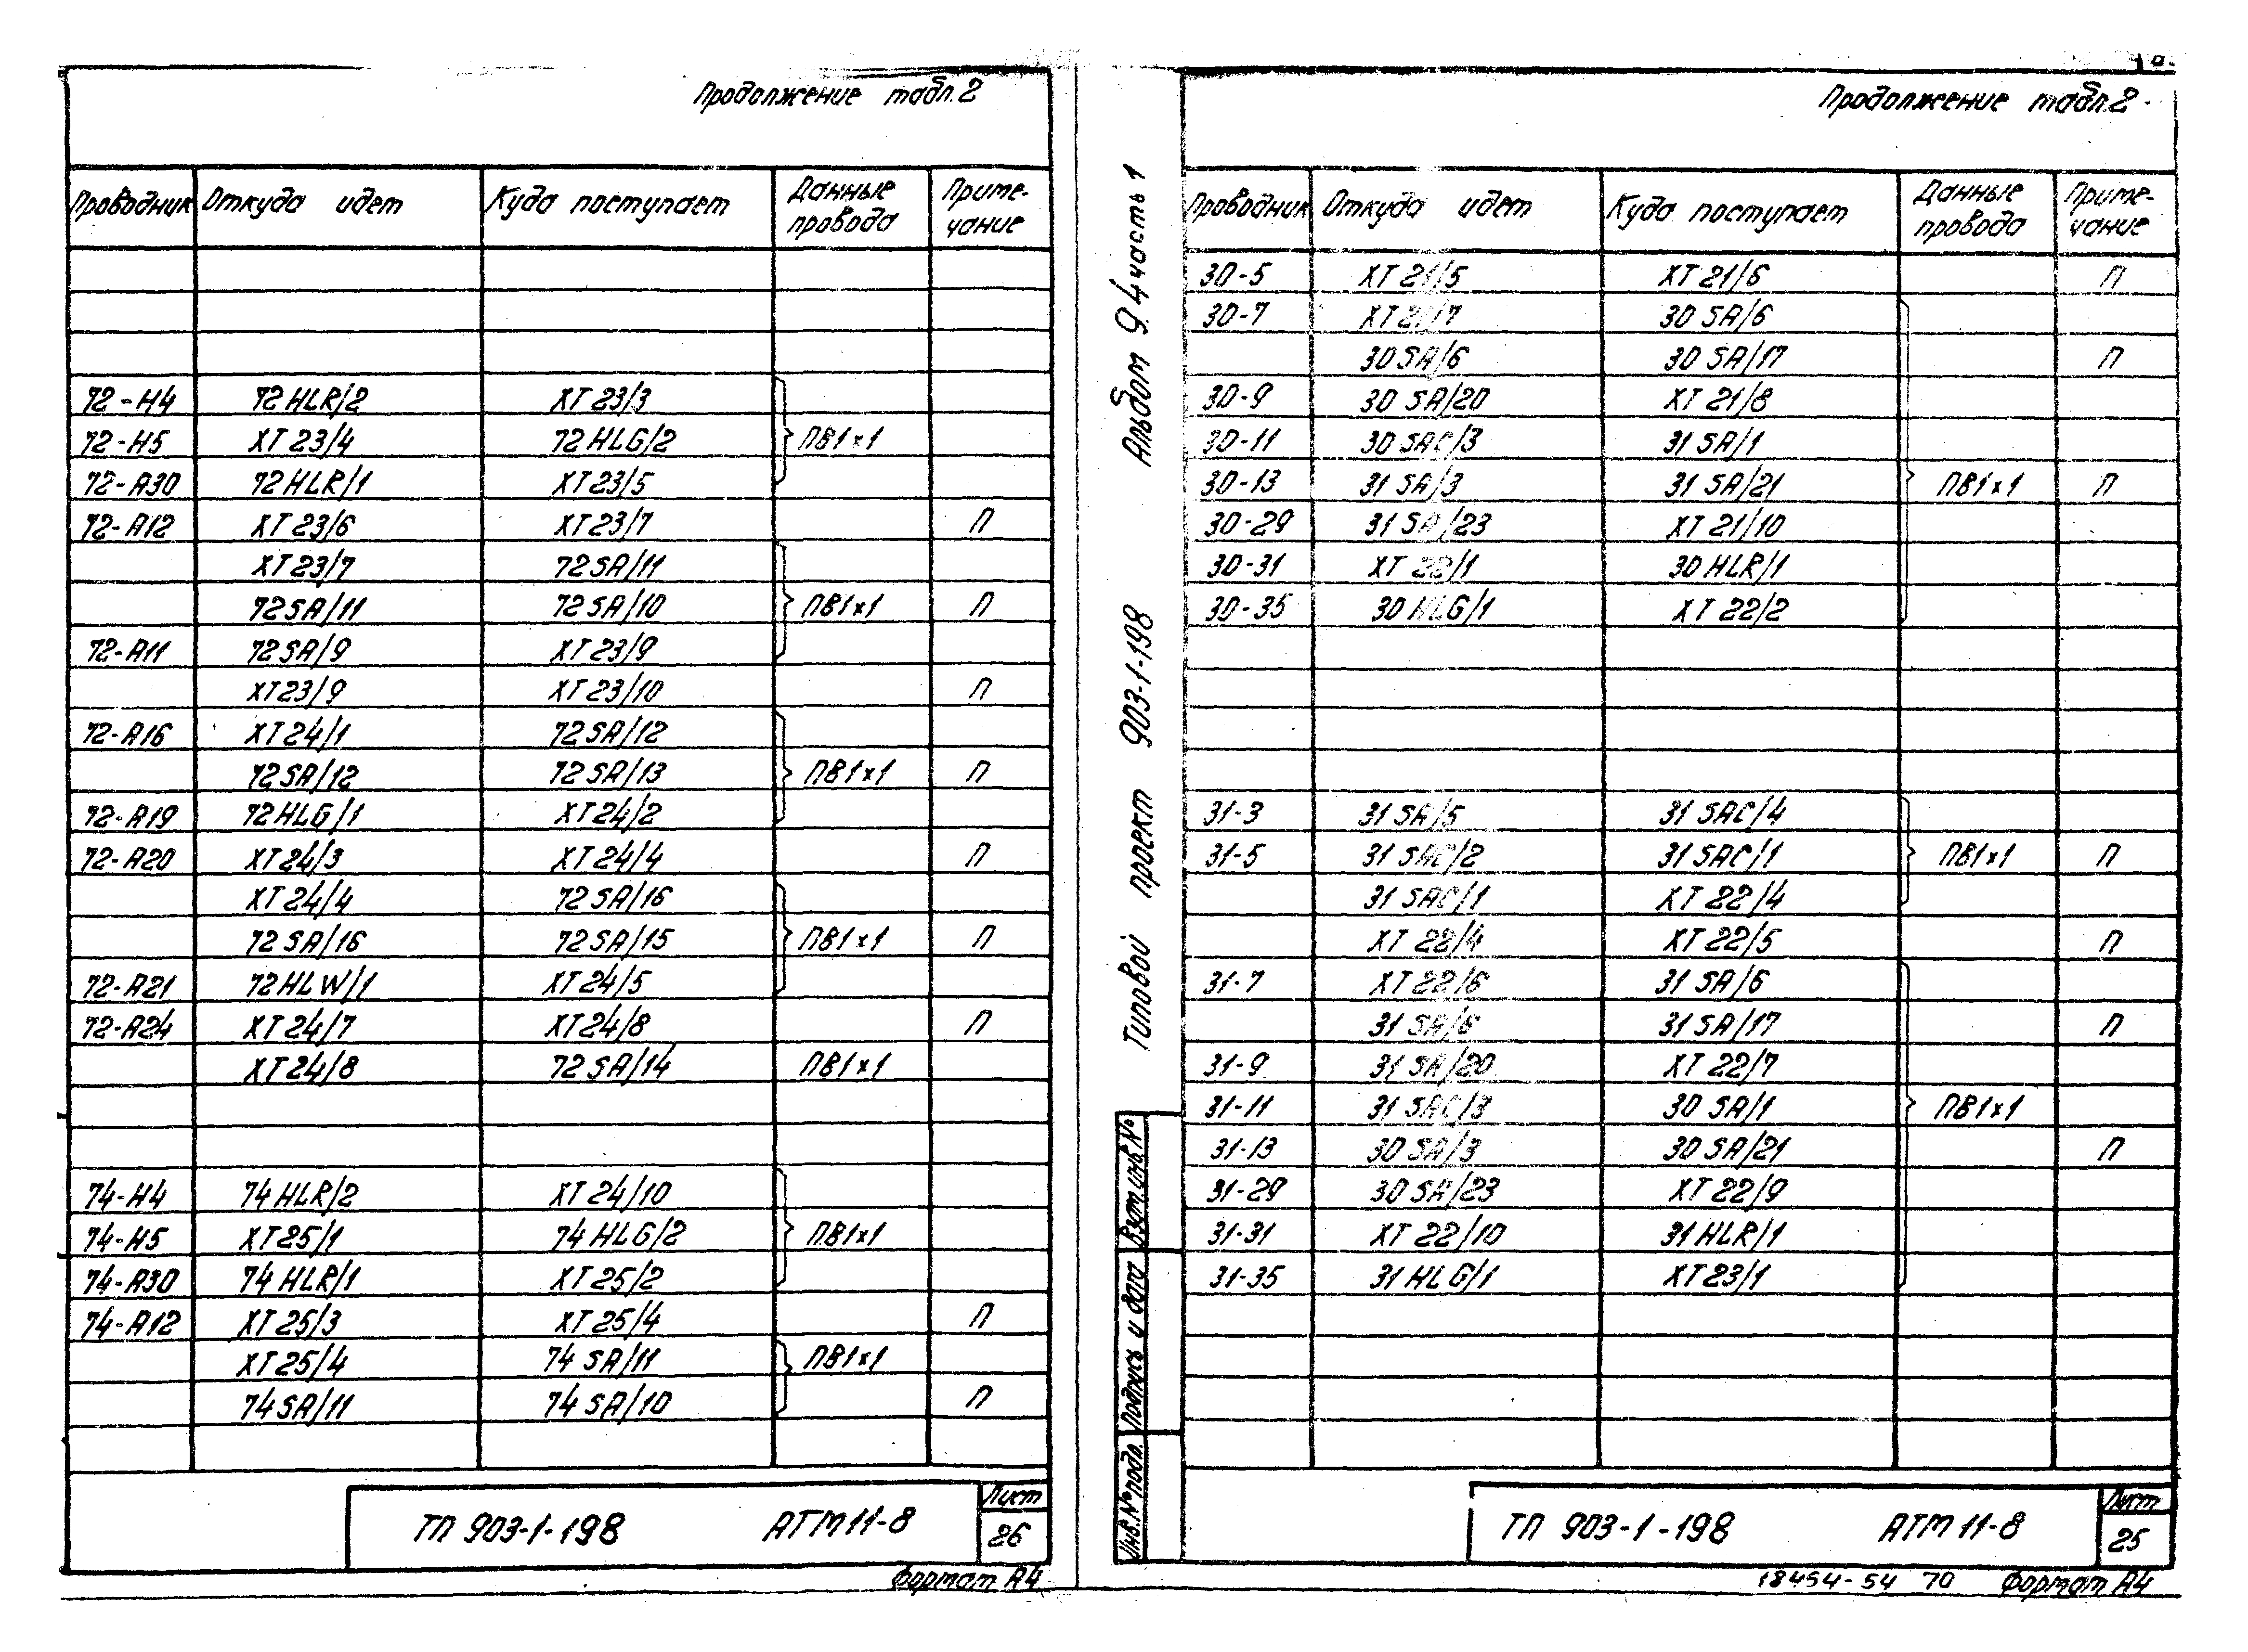 Продолжение табл.2
Проводник Откуда идет Куда поступает Данные провода Приме-чание
72-Н4 72HLR/2 ХТ23/3
72-Н5 ХТ23/4 72HLG/2 ПВ1×1
72-А30 72HLR/1 ХТ23/5
72-А12 ХТ23/6 ХТ23/7 П
ХТ23/7 72SA/11
72SA/11 72SA/10 ПВ1×1 П
72-А11 72SA/9 ХТ23/9
ХТ23/9 ХТ23/10 П
72-А16 ХТ24/1 72SA/12
72SA/12 72SA/13 ПВ1×1 П
72-А19 72HLG/1 ХТ24/2
72-А20 ХТ24/3 ХТ24/4 П
ХТ24/4 72SA/16
72SA/16 72SA/15 ПВ1×1 П
72-А21 72HLW/1 ХТ24/5
72-А24 ХТ24/7 ХТ24/8 П
ХТ24/8 72SA/14 ПВ1×1
74-Н4 74HLR/2 ХТ24/10
74-Н5 ХТ25/1 74HLG/2 ПВ1×1
74-А30 74HLR/1 ХТ25/2
74-А12 ХТ25/3 ХТ25/4 П
ХТ25/4 74SA/11 ПВ1×1
74SA/11 74SA/10 П
ТП 903-1-198 АТМ11-8
Лист
26
Формат А4
Альбом 9.4 часть 1
Типовой проект 903-1-198
Взам.инв.№
Подпись и дата
Инв.№подл.
Продолжение табл.2
Проводник Откуда идет Куда поступает Данные провода Приме-чание
30-5 ХТ21/5 ХТ21/6 П
30-7 ХТ21/7 30SA/6
30SA/6 30SA/17 П
30-9 30SA/20 ХТ21/8
30-11 30SAC/3 31SA/1
30-13 31SA/3 31SA/21 ПВ1×1 П
30-29 31SA/23 ХТ21/10
30-31 ХТ22/1 30HLR/1
30-35 30HLG/1 ХТ22/2
31-3 31SA/5 31SAC/4
31-5 31SAC/2 31SAC/1 ПВ1×1 П
31SAC/1 ХТ22/4
ХТ22/4 ХТ22/5 П
31-7 ХТ22/6 31SA/6
31SA/6 31SA/17 П
31-9 31SA/20 ХТ22/7
31-11 31SAC/3 30SA/1 ПВ1×1
31-13 30SA/3 30SA/21 П
31-29 30SA/23 ХТ22/9
31-31 ХТ22/10 31HLR/1
31-35 31HLG/1 ХТ23/1
ТП 903-1-198 АТМ11-8
Лист
25
18454-54 70 Формат А4